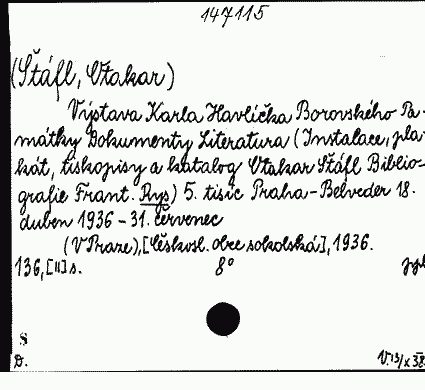 147115
(Štáfl, Otakar)
Výstava Karla Havlíčka Borovského Pa-
mátky Dokumenty Literatura (Instalace, pla-
kát, tiskopisy a katalog Otakar Štáfl Biblio-
grafie Frant. Rys) 5. tisíc Praha - Belveder 18.
duben 1936 - 31. červenec
(V Praze), [Českosl. obce sokolská], 1936.
136, [II] s. 8°
8
D. V. 13/X 38.